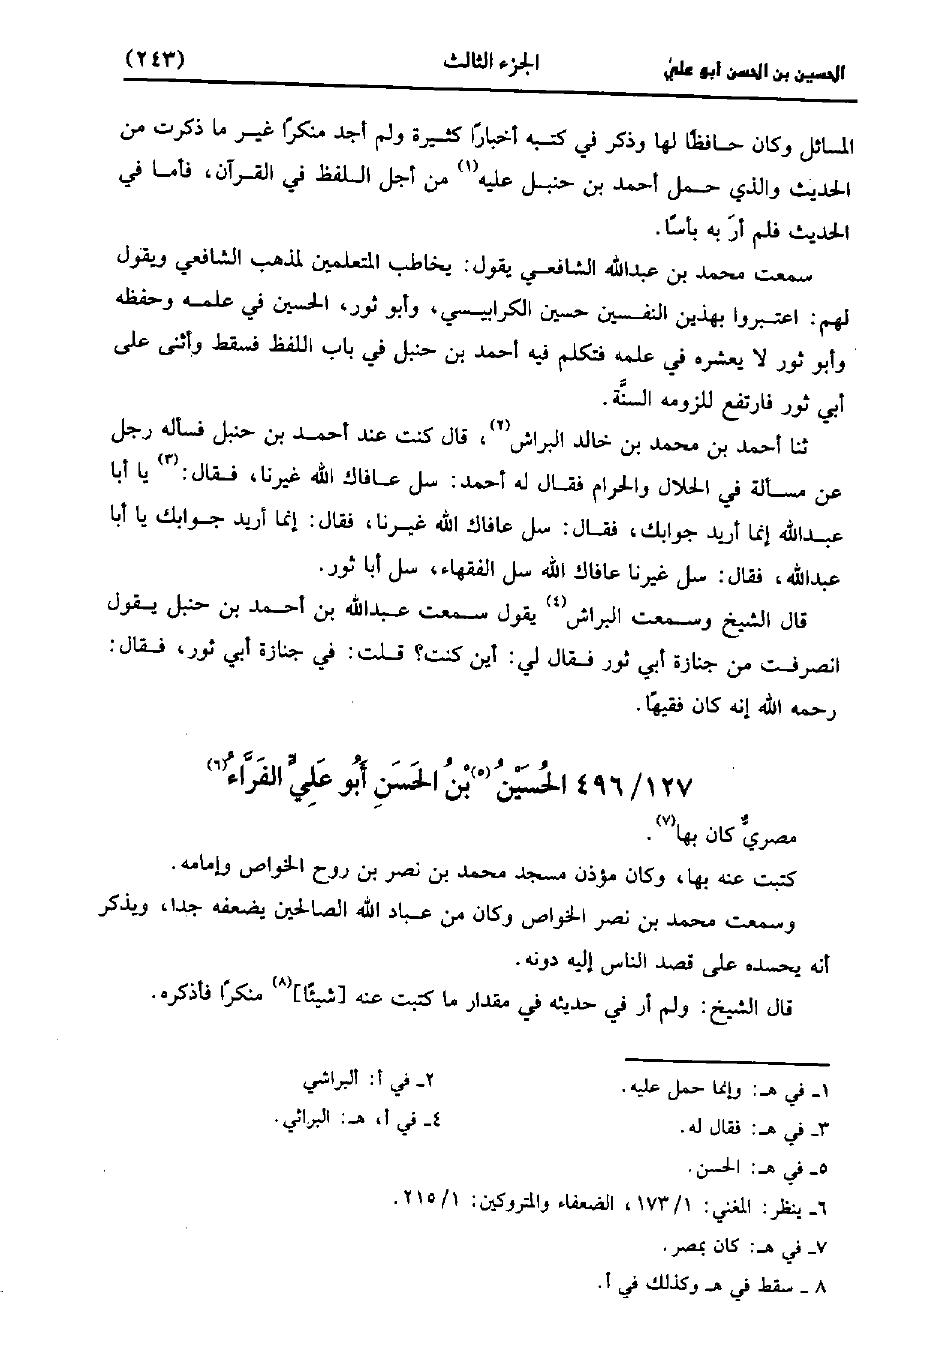 الحسين بن الحسن أبو علي الجزء الثالث (٢٤٣)
المسائل وكان حافظًا لها وذكر في كتبه أخبارًا كثيرة ولم أجد منكرًا غير ما ذكرت من
الحديث والذي حمل أحمد بن حنبل عليه(١) من أجل اللفظ في القرآن، فأما في
الحديث فلم أرَ به بأسًا.
سمعت محمد بن عبدالله الشافعي يقول: يخاطب المتعلمين لمذهب الشافعي ويقول
لهم: اعتبروا بهذين النفسين حسين الكرابيسي، وأبو ثور، الحسين في علمه وحفظه
وأبو ثور لا يعشره في علمه فتكلم فيه أحمد بن حنبل في باب اللفظ فسقط وأثنى على
أبي ثور فارتفع للزومه السنَّة.
ثنا أحمد بن محمد بن خالد البراش(٢)، قال كنت عند أحمد بن حنبل فسأله رجل
عن مسألة في الحلال والحرام فقال له أحمد: سل عافاك الله غيرنا، فقال:(٣) يا أبا
عبدالله إنما أريد جوابك، فقال: سل عافاك الله غيرنا، فقال: إنما أريد جوابك يا أبا
عبدالله، فقال: سل غيرنا عافاك الله سل الفقهاء، سل أبا ثور.
قال الشيخ وسمعت البراش(٤) يقول سمعت عبدالله بن أحمد بن حنبل يقول
انصرفت من جنازة أبي ثور فقال لي: أين كنت؟ قلت: في جنازة أبي ثور، فقال:
رحمه الله إنه كان فقيهًا.
٤٩٦/١٢٧ الحُسَيْنُ(٥) بْنُ الحَسَنِ أَبُو عَلِيٍّ الفَرَّاءُ(٦)
مصريٌّ كان بها(٧).
كتبت عنه بها، وكان مؤذن مسجد محمد بن نصر بن روح الخواص وإمامه.
وسمعت محمد بن نصر الخواص وكان من عباد الله الصالحين يضعفه جدا، ويذكر
أنه يحسده على قصد الناس إليه دونه.
قال الشيخ: ولم أر في حديثه في مقدار ما كتبت عنه [شيئًا](٨) منكرًا فأذكره.
١ـ في هـ: وإنما حمل عليه. ٢ـ في أ: ألبراشي
٣ـ في هـ: فقال له. ٤ـ في أ، هـ: البراثي.
٥ـ في هـ: الحسن.
٦ـ ينظر: المغني: ١٧٣/١، الضعفاء والمتروكين: ٢١٥/١.
٧ـ في هـ: كان بمصر.
٨ ـ سقط في هـ وكذلك في أ.